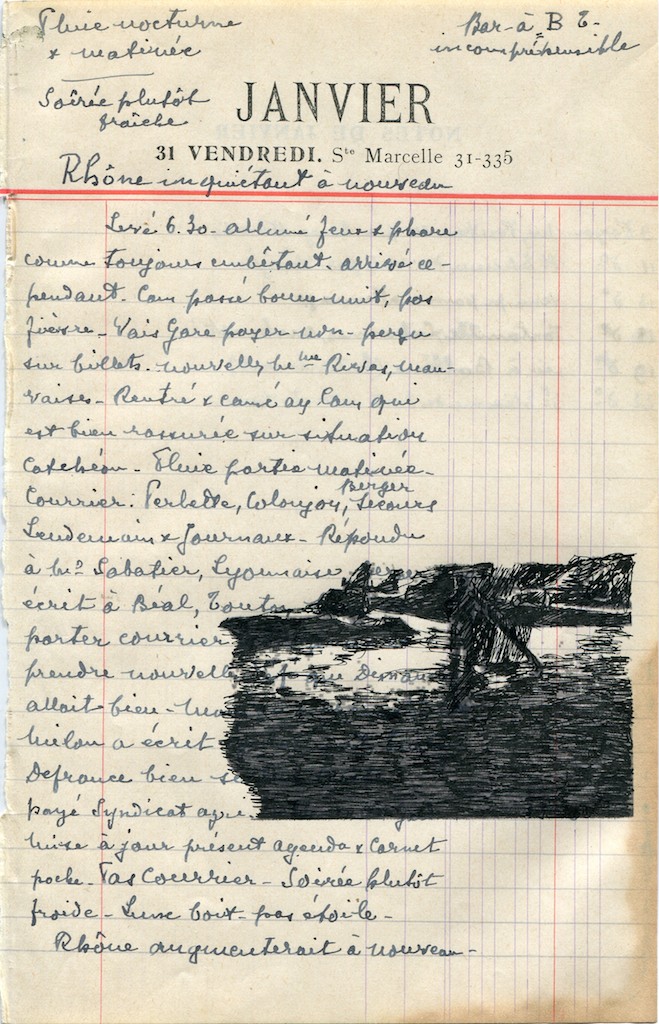 Pluie nocturne
& matinée
Bar-à B T-
incompréhensible
Soirée plutôt
fraîche
JANVIER
31 VENDREDI. Ste Marcelle 31-335
Rhône inquiétant à nouveau
Levé 6.30- allumé feux & phare
comme toujours embêtant. arrivé ce-
pendant. Cam passé bonne nuit, pas
fièvre- Vais Gare payer non- perçu
sur billets. nouvelles, Mme Rivas, mau-
vaises- Rentré & Cam qui
est bien rassurée sur situation
- Pluie partie matinée-
Berger
Courrier: Perbette, Secours
Lendemain & Journaux- Répondu
à Mr Sabatier, Lyonnaise
écrit à Béal,
porter courrier
prendre nouvelles que
allait bien-
Milou a écrit
Defrance bien
payé Syndicat
Mise à jour présent agenda & Carnet
poche- Pas Courrier- Soirée plutôt
froide- Lune pas étoile-
Rhône augmenterait à nouveau-